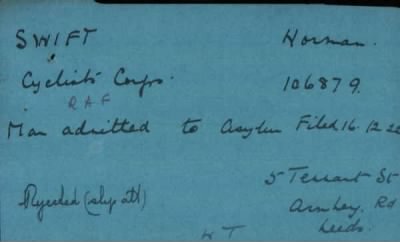 SWIFT Norman.
Cyclists Corps. 106879.
RAF
Man admitted to Asylum Filed 16.12.22
5 Tennant St
Rejected (slip att) Armley Rd
Leeds.